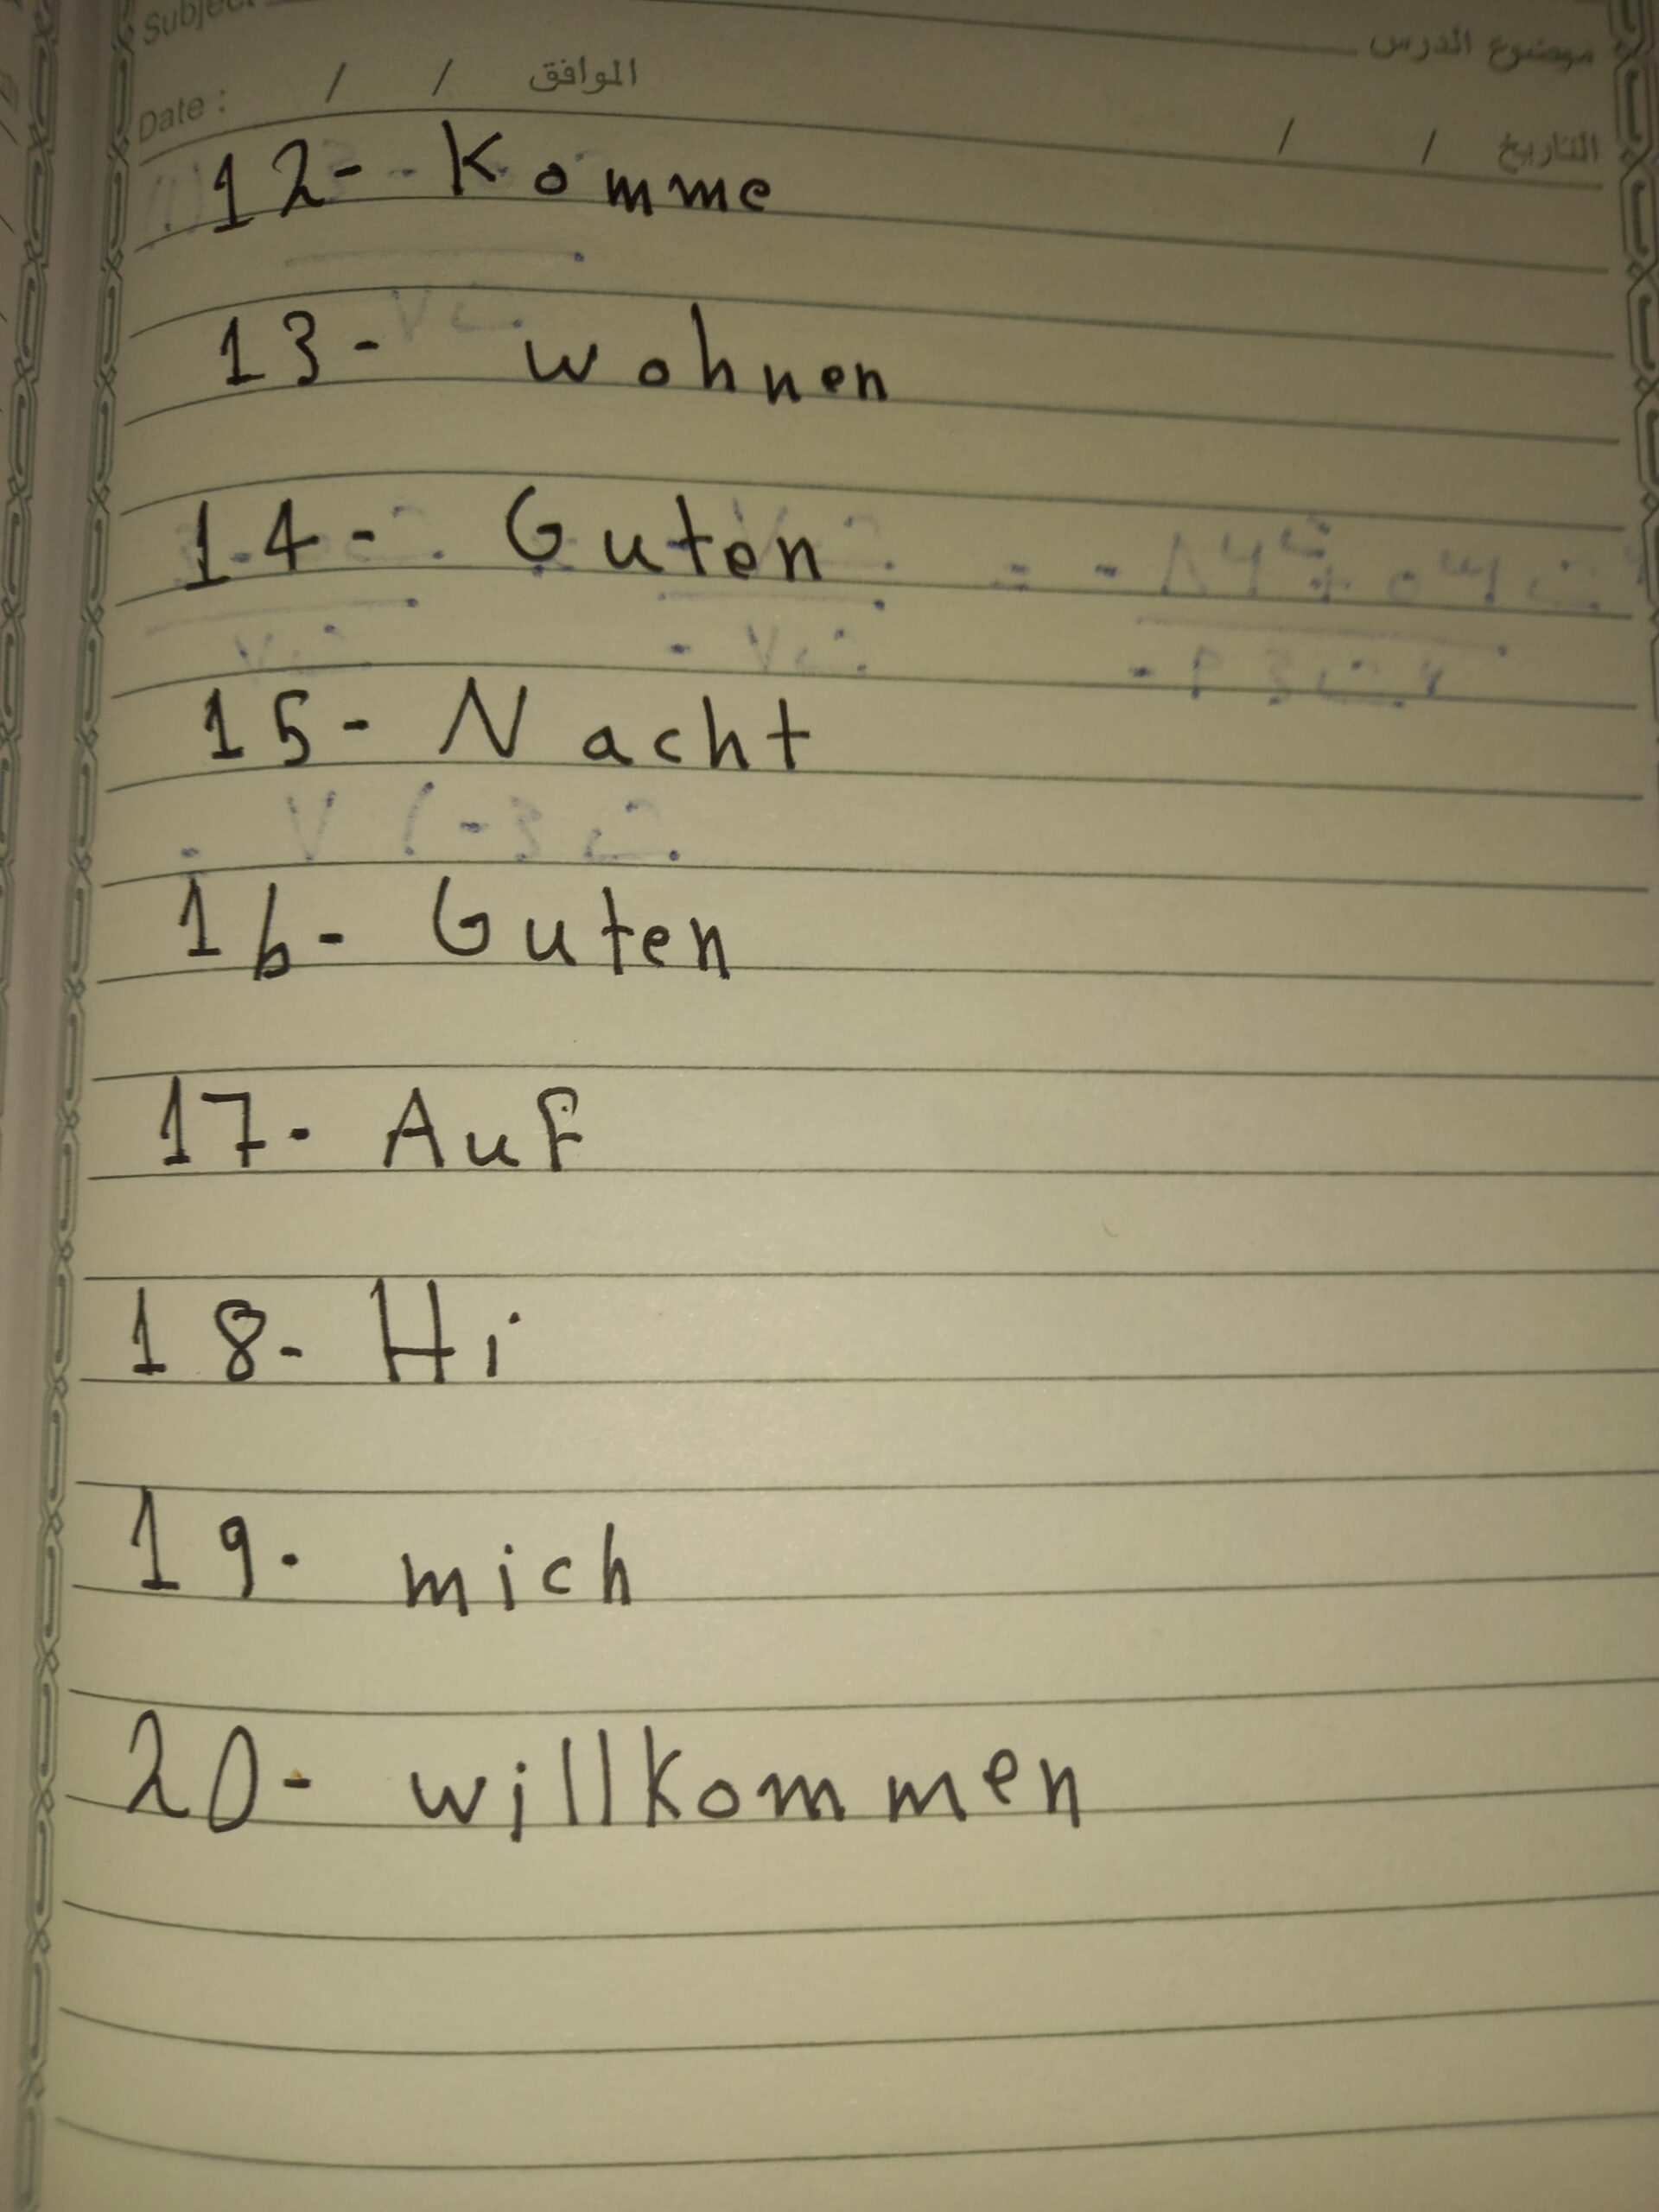 Subject
موضوع الدرس
Date : / / الموافق
التاريخ / /
12- Komme
13- wohnen
14- Guten
15- Nacht
16- Guten
17- Auf
18- Hi
19- mich
20- willkommen